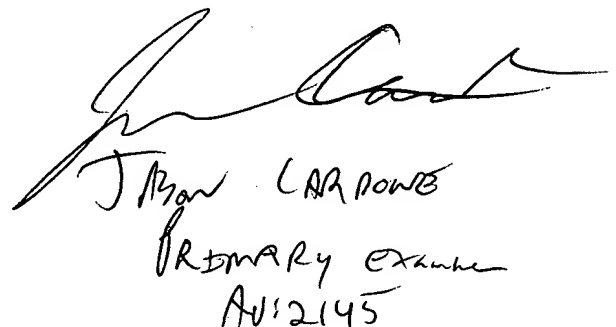 Jason Cardone
Primary Examiner
AU: 2145